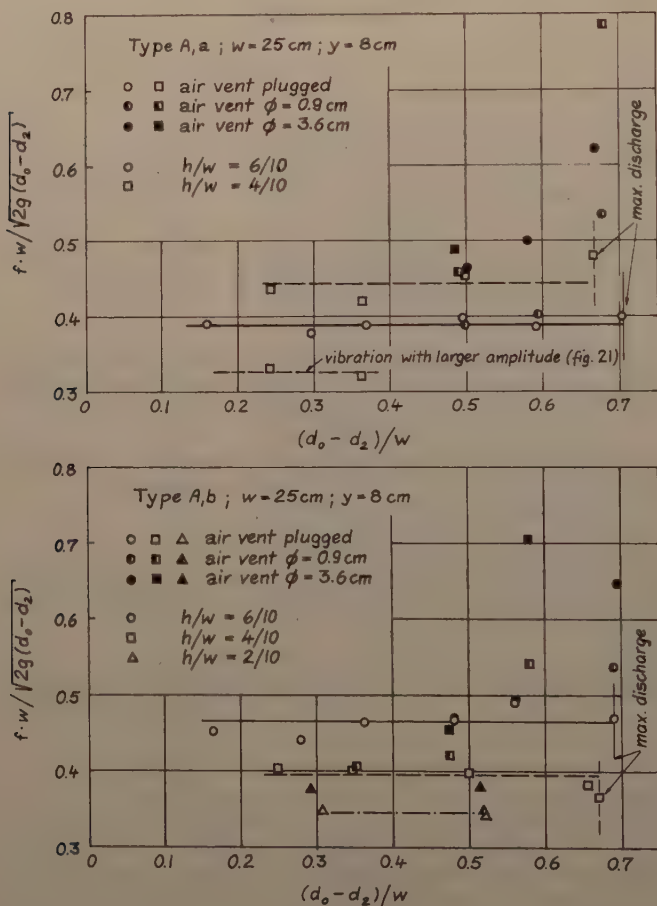 0.8
0.7
0.6
0.5
0.4
0.3
f·w/√2g(d₀-d₂)
Type A,a ; w = 25 cm ; y = 8 cm
○ □ air vent plugged
◐ ◧ air vent φ = 0.9 cm
● ■ air vent φ = 3.6 cm
○ h/w = 6/10
□ h/w = 4/10
max. discharge
vibration with larger amplitude (fig. 21)
0 0.1 0.2 0.3 0.4 0.5 0.6 0.7
(d₀-d₂)/w
0.8
0.7
0.6
0.5
0.4
0.3
f·w/√2g(d₀-d₂)
Type A,b ; w = 25 cm ; y = 8 cm
○ □ △ air vent plugged
◐ ◧ ▲ air vent φ = 0.9 cm
● ■ ▲ air vent φ = 3.6 cm
○ h/w = 6/10
□ h/w = 4/10
△ h/w = 2/10
max. discharge
0 0.1 0.2 0.3 0.4 0.5 0.6 0.7
(d₀-d₂)/w